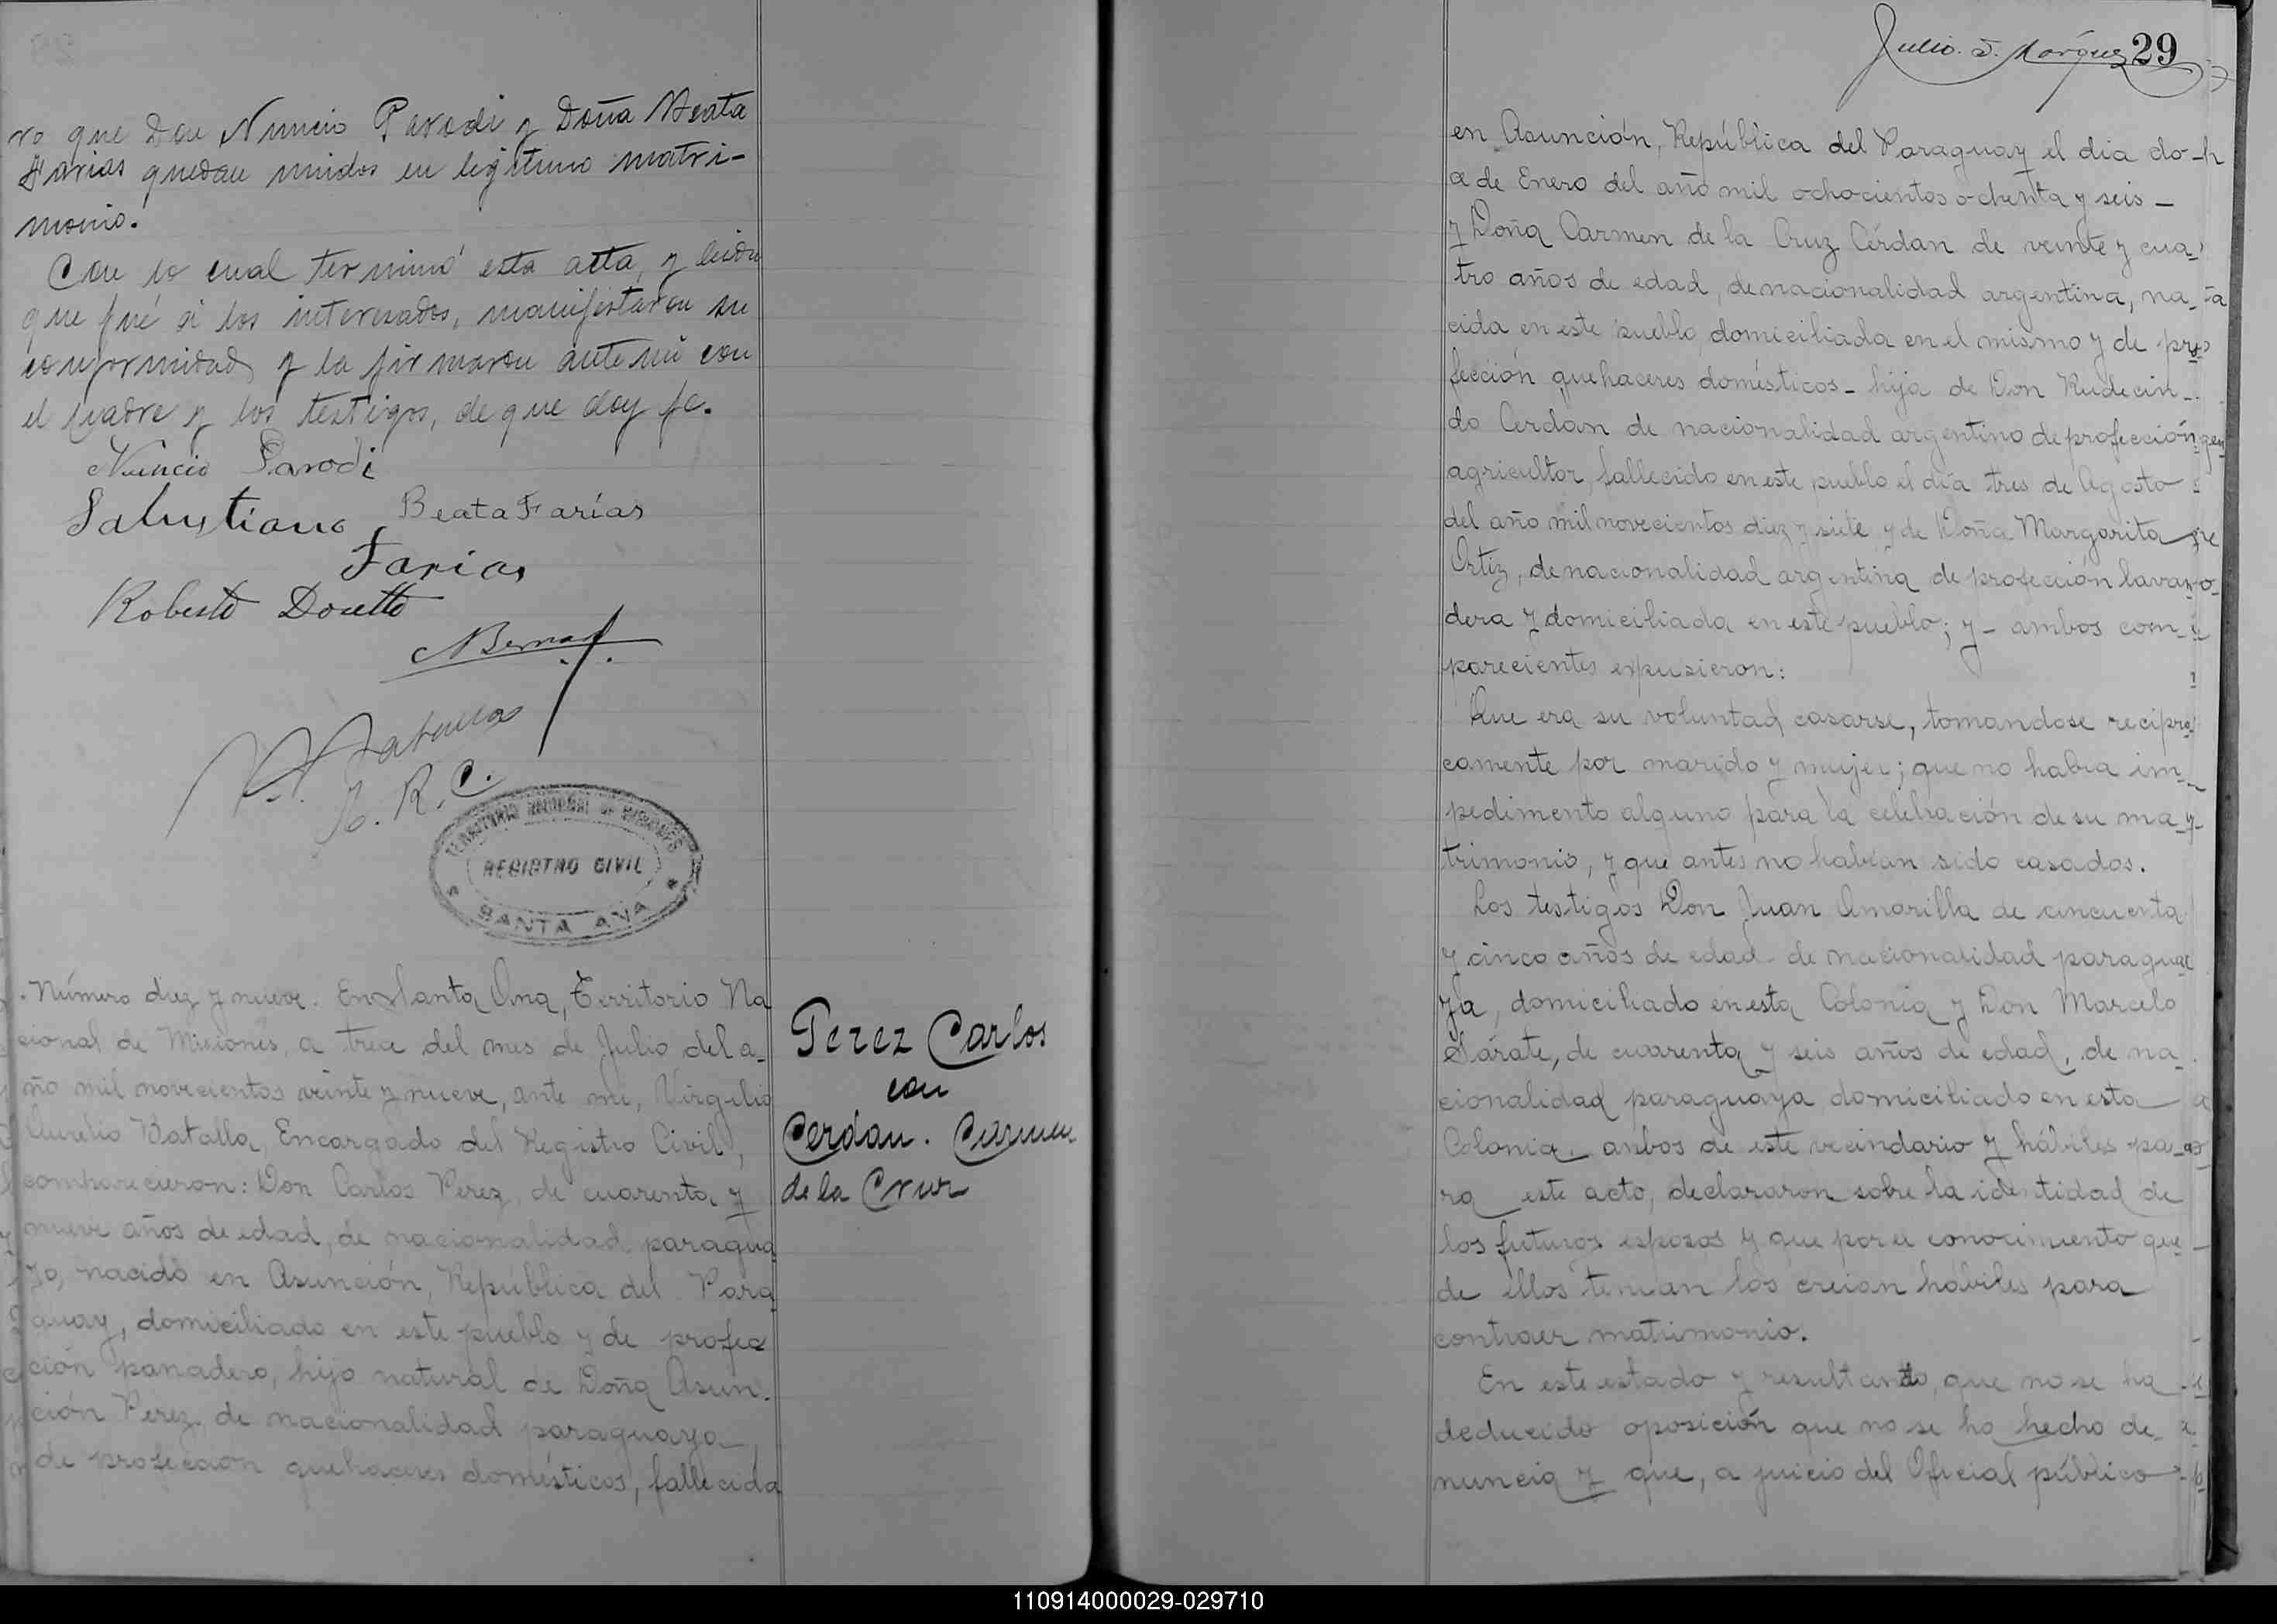 ro que Don Nuncio Parodi y Doña Beata
Farias quedan unidos en legitimo matri-
monio.
Con lo cual terminó esta acta, y leida
que fué á los interesados, manifestaron su
conformidad y la firmaron ante mi con
el padre y los testigos, de que doy fe.
Nuncio Parodi
Salustiano Beata Farías
Farias
Roberto
J. R. C.
TERRITORIO NACIONAL DE MISIONES
REGISTRO CIVIL
SANTA ANA
Número diez y nueve. En Santa Ana, Territorio Na
cional de Misiones, a trece del mes de Julio del a-
ño mil novecientos veinte y nueve, ante mi, Virgilio
Aurelio Batalla, Encargado del Registro Civil,
comparecieron: Don Carlos Perez, de cuarenta y
nueve años de edad, de nacionalidad paragua
yo, nacido en Asunción, República del Para
guay, domiciliado en este pueblo y de profec
ción panadero, hijo natural de Doña Asun-
ción Perez, de nacionalidad paraguaya
de profección quehaceres domésticos, fallecida
Perez Carlos
con
Cerdán. Carmen
de la Cruz
Julio S. Márquez 29
en Asunción, República del Paraguay el dia do-
ce de Enero del año mil ochocientos ochenta y seis -
y Doña Carmen de la Cruz Cérdan de veinte y cua-
tro años de edad, de nacionalidad argentina, na-
cida en este pueblo, domiciliada en el mismo y de pro
fección quehaceres domésticos - hija de Don Rudecin-
do Cerdan de nacionalidad argentino de profección
agricultor, fallecido en este pueblo el día tres de Agosto
del año mil novecientos diez y siete y de Doña Margarita
Ortiz, de nacionalidad argentina de profección lavan-
dera y domiciliada en este pueblo; y - ambos com-
parecientes expusieron:
Que era su voluntad casarse, tomandose recipro
camente por marido y mujer; que no habia im-
pedimento alguno para la celebración de su ma-
trimonio, y que antes no habían sido casados.
Los testigos Don Juan Amarilla de cincuenta
y cinco años de edad de nacionalidad paragua
ya, domiciliado en esta Colonia y Don Marcelo
Sárate, de cuarenta y seis años de edad, de na
cionalidad paraguaya domiciliado en esta
Colonia, anbos de este vecindario y hábiles pa-
ra este acto, declararon sobre la identidad de
los futuros esposos y que por el conocimiento que
de ellos tenian los creian hábiles para
contraer matrimonio.
En este estado y resultando, que no se ha
deducido oposición que no se ha hecho de-
nuncia y que, a juicio del Oficial público
110914000029-029710